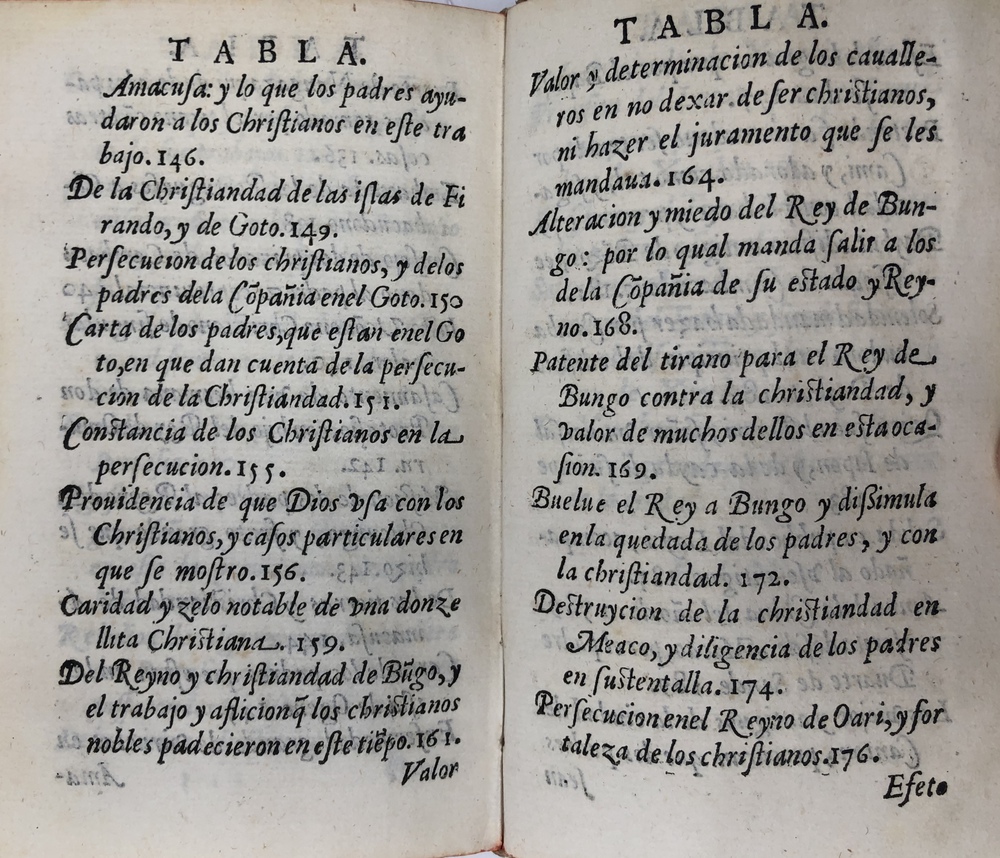 TABLA.
Amacusa: y lo que los padres ayu-
daron a los Christianos en este tra
bajo. 146.
De la Christiandad de las islas de Fi
rando, y de Goto. 149.
Persecucion de los christianos, y delos
padres dela Cōpañia enel Goto. 150
Carta de los padres, que estan enel Go
to, en que dan cuenta de la persecu-
cion de la Christiandad. 151.
Constancia de los Christianos en la
persecucion. 155.
Prouidencia de que Dios vsa con los
Christianos, y casos particulares en
que se mostro. 156.
Caridad y zelo notable de vna donze
llita Christiana. 159.
Del Reyno y christiandad de Būgo, y
el trabajo y aflicion q̄ los christianos
nobles padecieron en este tiēpo. 161.
Valor
TABLA.
Valor y determinacion de los caualle-
ros en no dexar de ser christianos,
ni hazer el juramento que se les
mandaua. 164.
Alteracion y miedo del Rey de Bun-
go: por lo qual manda salir a los
de la Cōpañia de su estado y Rey-
no. 168.
Patente del tirano para el Rey de
Bungo contra la christiandad, y
valor de muchos dellos en esta oca-
sion. 169.
Buelue el Rey a Bungo y dissimula
enla quedada de los padres, y con
la christiandad. 172.
Destruycion de la christiandad en
Meaco, y diligencia de los padres
en sustentalla. 174.
Persecucion enel Reyno de Oari, y for
taleza de los christianos. 176.
Efeto